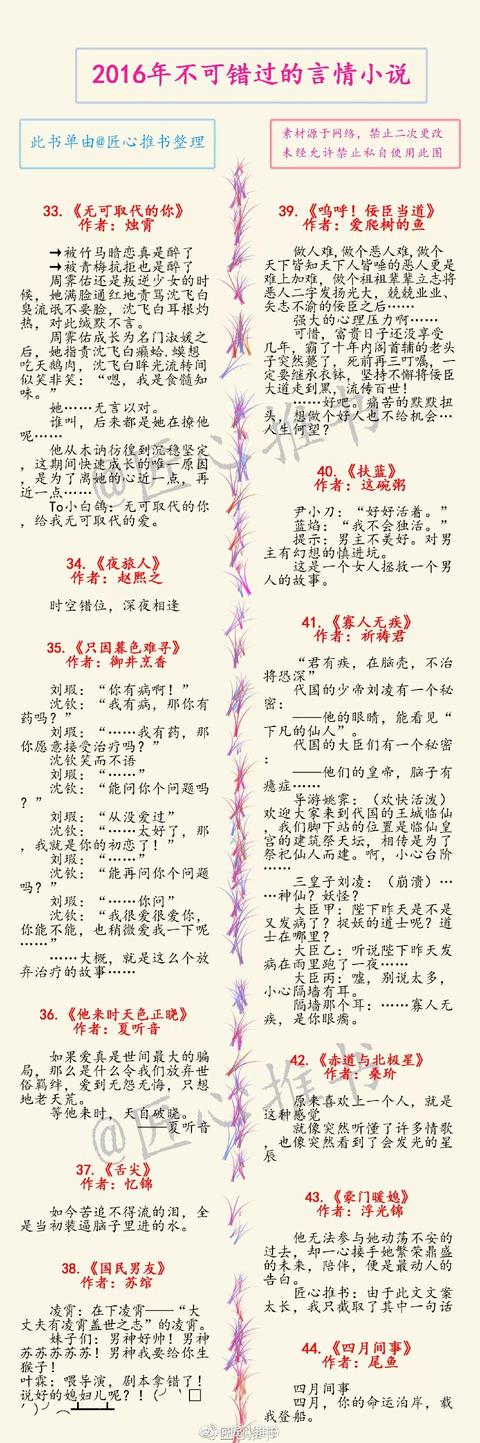 2016年不可错过的言情小说
此书单由@匠心推书整理
素材源于网络，禁止二次更改
未经允许禁止私自使用此图
33.《无可取代的你》
作者：烛霄
→被竹马暗恋真是醉了
→被青梅抗拒也是醉了
周霁佑还是叛逆少女的时
候，她满脸通红地责骂沈飞白
臭流氓不要脸，沈飞白耳根灼
热，对此缄默不言。
周霁佑成长为名门淑媛之
后，她指责沈飞白癞蛤.蟆想
吃天鹅肉，沈飞白眸光流转间
似笑非笑：“嗯，我是食髓知
味。”
她……无言以对。
谁叫，后来都是她在撩他
呢……
他从木讷彷徨到沉稳坚定
，这期间快速成长的唯一原因
，是为了离她的心近一点，再
近一点……
To小白鸽：无可取代的你
，给我无可取代的爱。
34.《夜旅人》
作者：赵熙之
时空错位，深夜相逢
35.《只因暮色难寻》
作者：御井烹香
刘瑕：“你有病啊！”
沈钦：“我有病，那你有
药吗？”
刘瑕：“……我有药，那
你愿意接受治疗吗？”
沈钦笑而不语
刘瑕：“……”
沈钦：“能问你个问题吗
？”
刘瑕：“从没爱过”
沈钦：“……太好了，那
，我就是你的初恋了！”
刘瑕：“……”
沈钦：“能再问你个问题
吗？”
刘瑕：“……你问”
沈钦：“我很爱很爱你，
你能不能，也稍微爱我一下呢
……”
……大概，就是这么个放
弃治疗的故事……
36.《他来时天色正晓》
作者：夏听音
如果爱真是世间最大的骗
局，那么是什么令我们放弃世
俗羁绊，爱到无怨无悔，只想
地老天荒。
等他来时，天自破晓。
——夏听音
37.《舌尖》
作者：忆锦
如今苦追不得流的泪，全
是当初装逼脑子里进的水。
38.《国民男友》
作者：苏绾
凌霄：在下凌霄——“大
丈夫有凌霄盖世之志”的凌霄。
妹子们：男神好帅！男神
苏苏苏苏苏！男神我要给你生
猴子！
叶霖：喂导演，剧本拿错了！
说好的媳妇儿呢？！(╯‵□
′)╯︵┻━┻
39.《呜呼！佞臣当道》
作者：爱爬树的鱼
做人难,做个恶人难,做个
天下皆知天下人皆唾的恶人更是
难上加难，做个祖祖辈辈立志将
恶人二字发扬光大，兢兢业业、
矢志不渝的佞臣之后……
强大的心理压力啊……
可惜，富贵日子还没享受
几年，霸了十年内阁首辅的老头
子突然薨了，死前再三叮嘱，一
定要继承衣钵，坚持不懈将佞臣
大道走到黑，流传百世！
……好吧。痛苦的默默扭
头，想做个好人也不给机会…
人生何望？
40.《扶蓝》
作者：这碗粥
尹小刀：“好好活着。”
蓝焰：“我不会独活。”
提示：男主不美好。对男
主有幻想的慎进坑。
这是一个女人拯救一个男
人的故事。
41.《寡人无疾》
作者：祈祷君
“君有疾，在脑壳，不治
将恐深”
代国的少帝刘凌有一个秘
密：
——他的眼睛，能看见“
下凡的仙人”。
代国的大臣们有一个秘密
：
——他们的皇帝，脑子有
癔症……
导游姚霁：（欢快活泼）
欢迎大家来到代国的王城临仙
，我们脚下站的位置是临仙皇
宫的建筑祭天坛，相传是为了
祭祀仙人而建。啊，小心台阶
……
三皇子刘凌：（崩溃）…
…神仙？妖怪？
大臣甲：陛下昨天是不是
又发病了？捉妖的道士呢？道
士在哪里？
大臣乙：听说陛下昨天发
病在雨里跑了一夜……
大臣丙：嘘，别说太多，
小心隔墙有耳。
隔墙那个耳：……寡人无
疾，是你眼瘸。
42.《赤道与北极星》
作者：桑玠
原来喜欢上一个人，就是
这种感觉
就像突然听懂了许多情歌
，也像突然看到了会发光的星
辰
43.《豪门暖媳》
作者：浮光锦
他无法参与她动荡不安的
过去，却一心接手她繁荣鼎盛
的未来，陪伴，便是最动人的
告白。
匠心推书：由于此文文案
太长，我只截取了其中一句话
44.《四月间事》
作者：尾鱼
四月间事
四月，你的命运泊岸，载
我登船。
@匠心推书
@匠心推书
@匠心推书